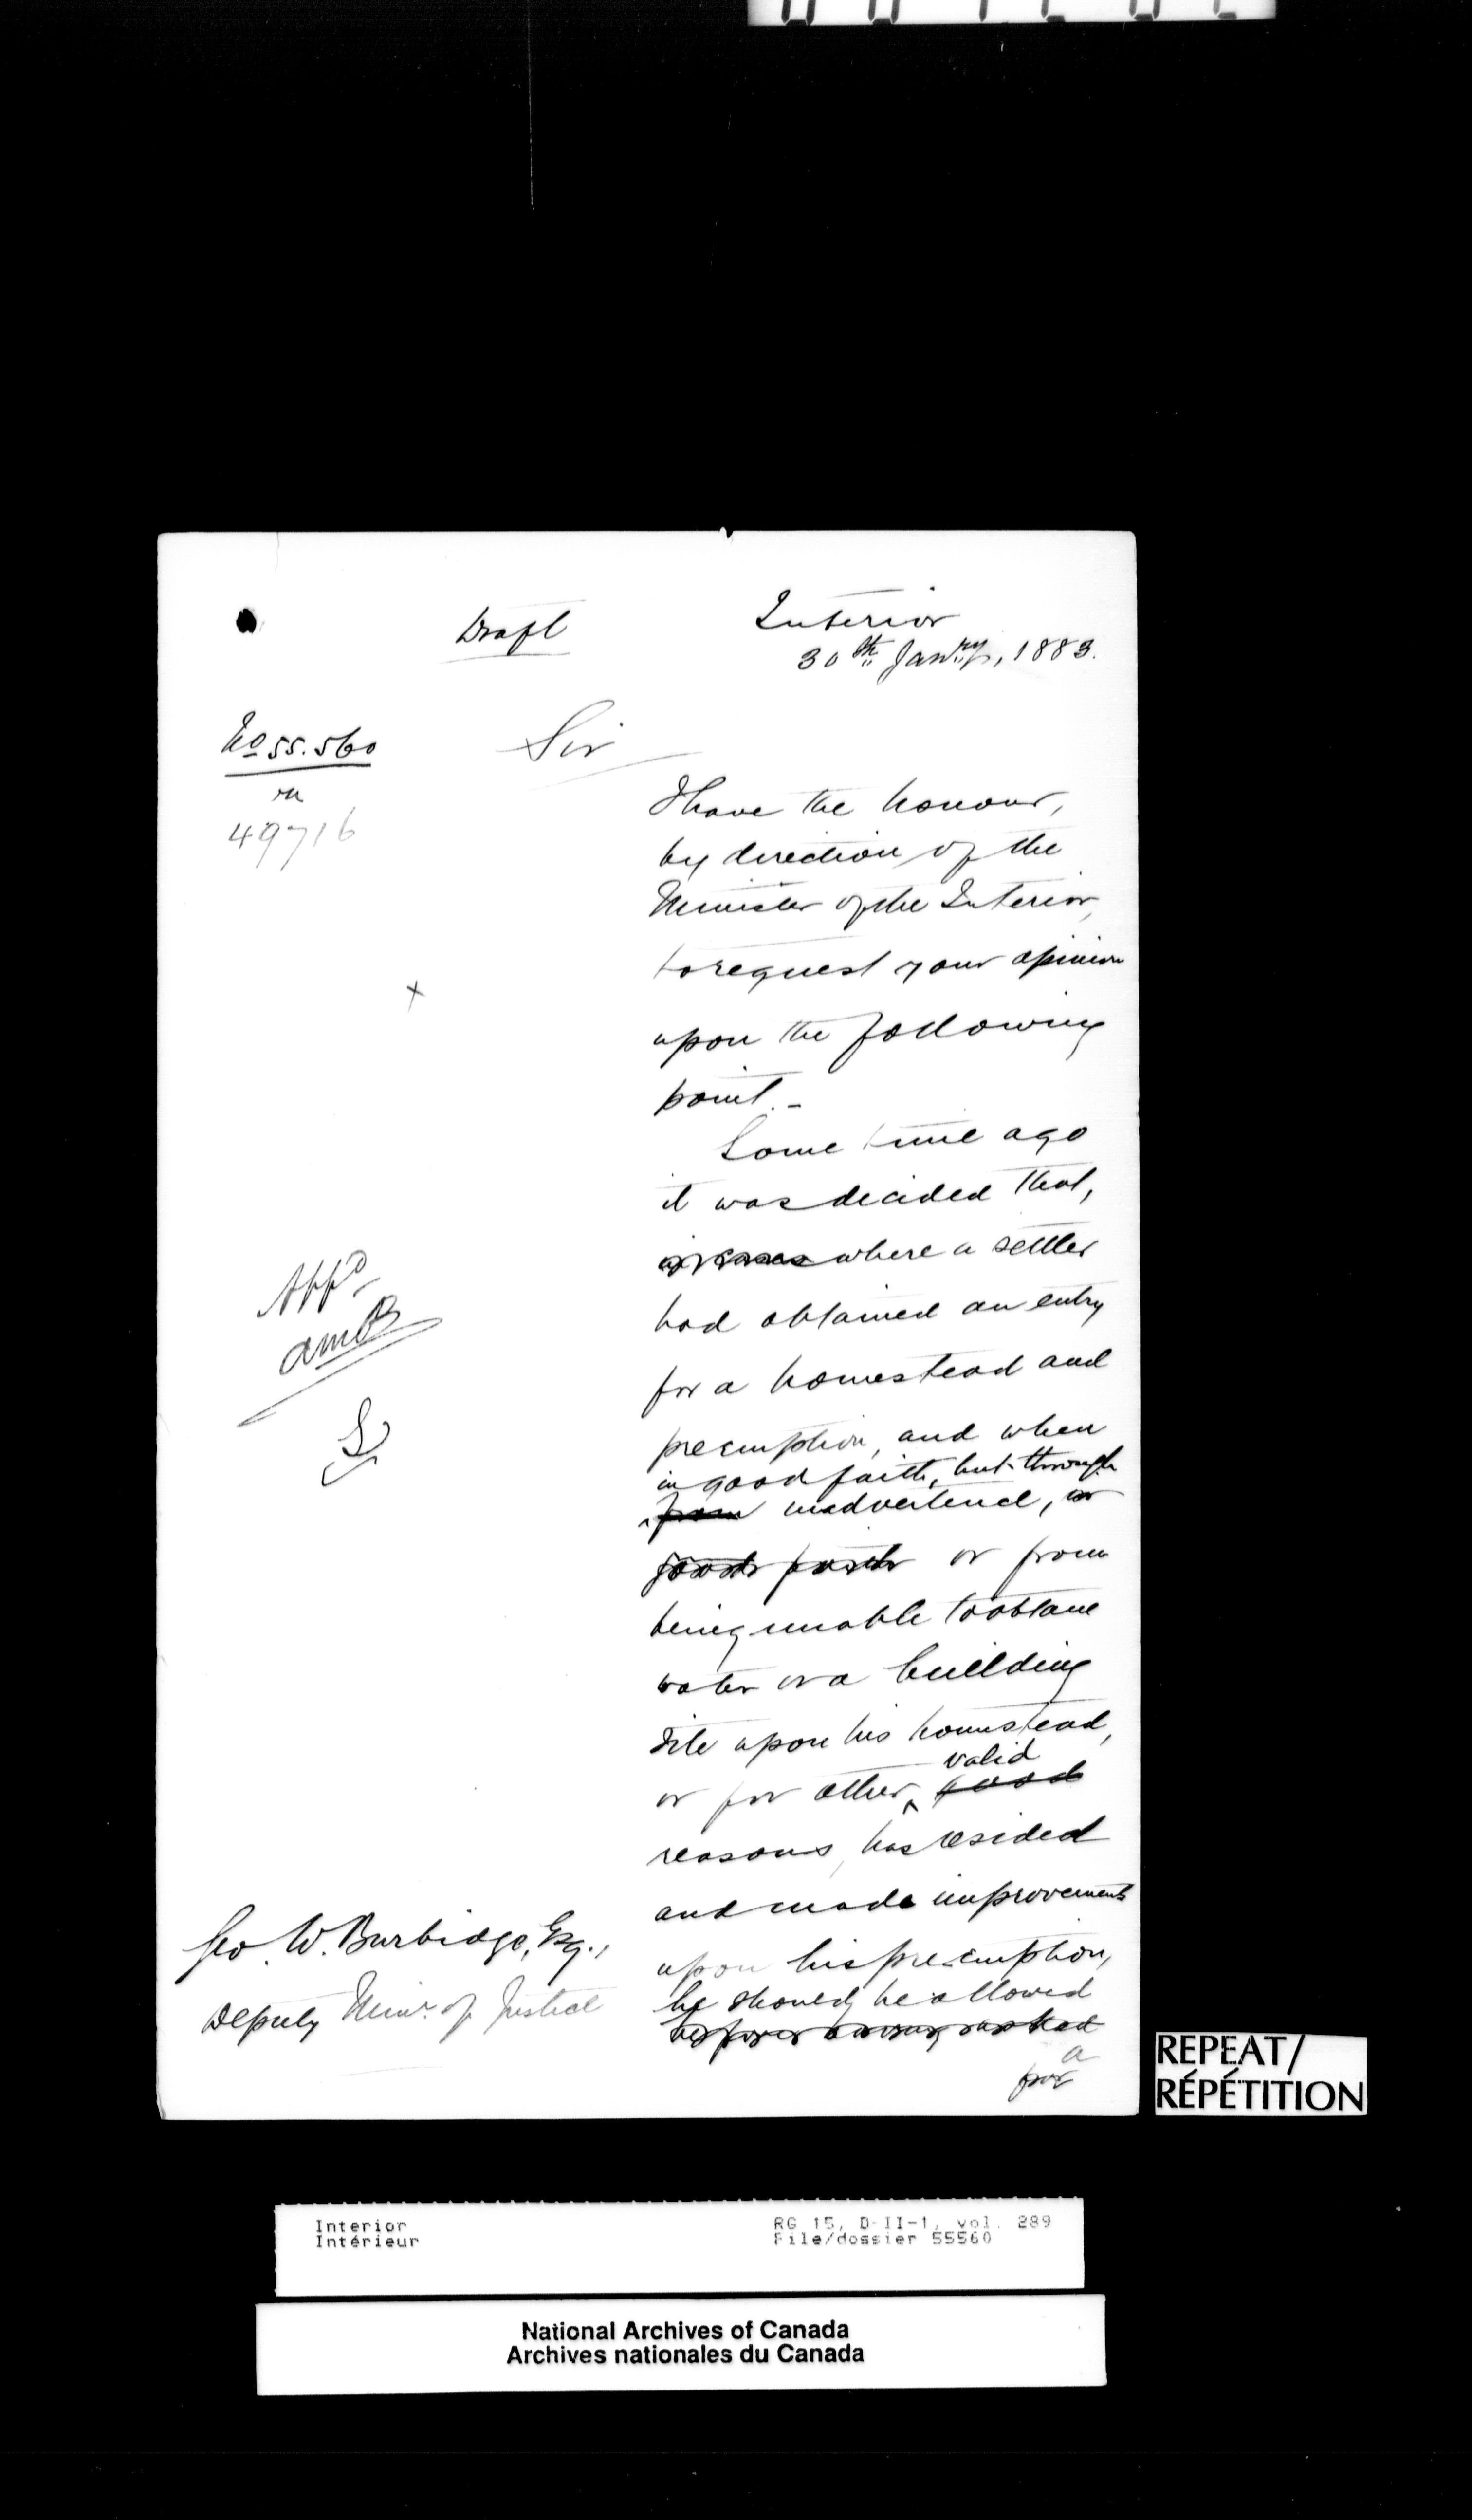 Draft
Interior
30th Jan'ry, 1883.
No 55.560
on
49716
Sir
I have the honour,
by direction of the
Minister of the Interior,
to request your opinion
upon the following
point. -
Some time ago
it was decided that,
where a settler
had obtained an entry
for a homestead and
preemption, and when
in good faith, but through
from inadvertence, or
good faith or from
being unable to obtain
water or a building
site upon his homestead,
valid
or for other good
reasons, has resided
and made improvements
upon his preemption,
he should be allowed
a
for
x
App'd
AMB
Geo. W. Burbidge, Esq.,
Deputy Minr. of Justice
REPEAT/
RÉPÉTITION
Interior
Intérieur
RG 15, D-II-1, vol. 289
File/dossier 55560
National Archives of Canada
Archives nationales du Canada